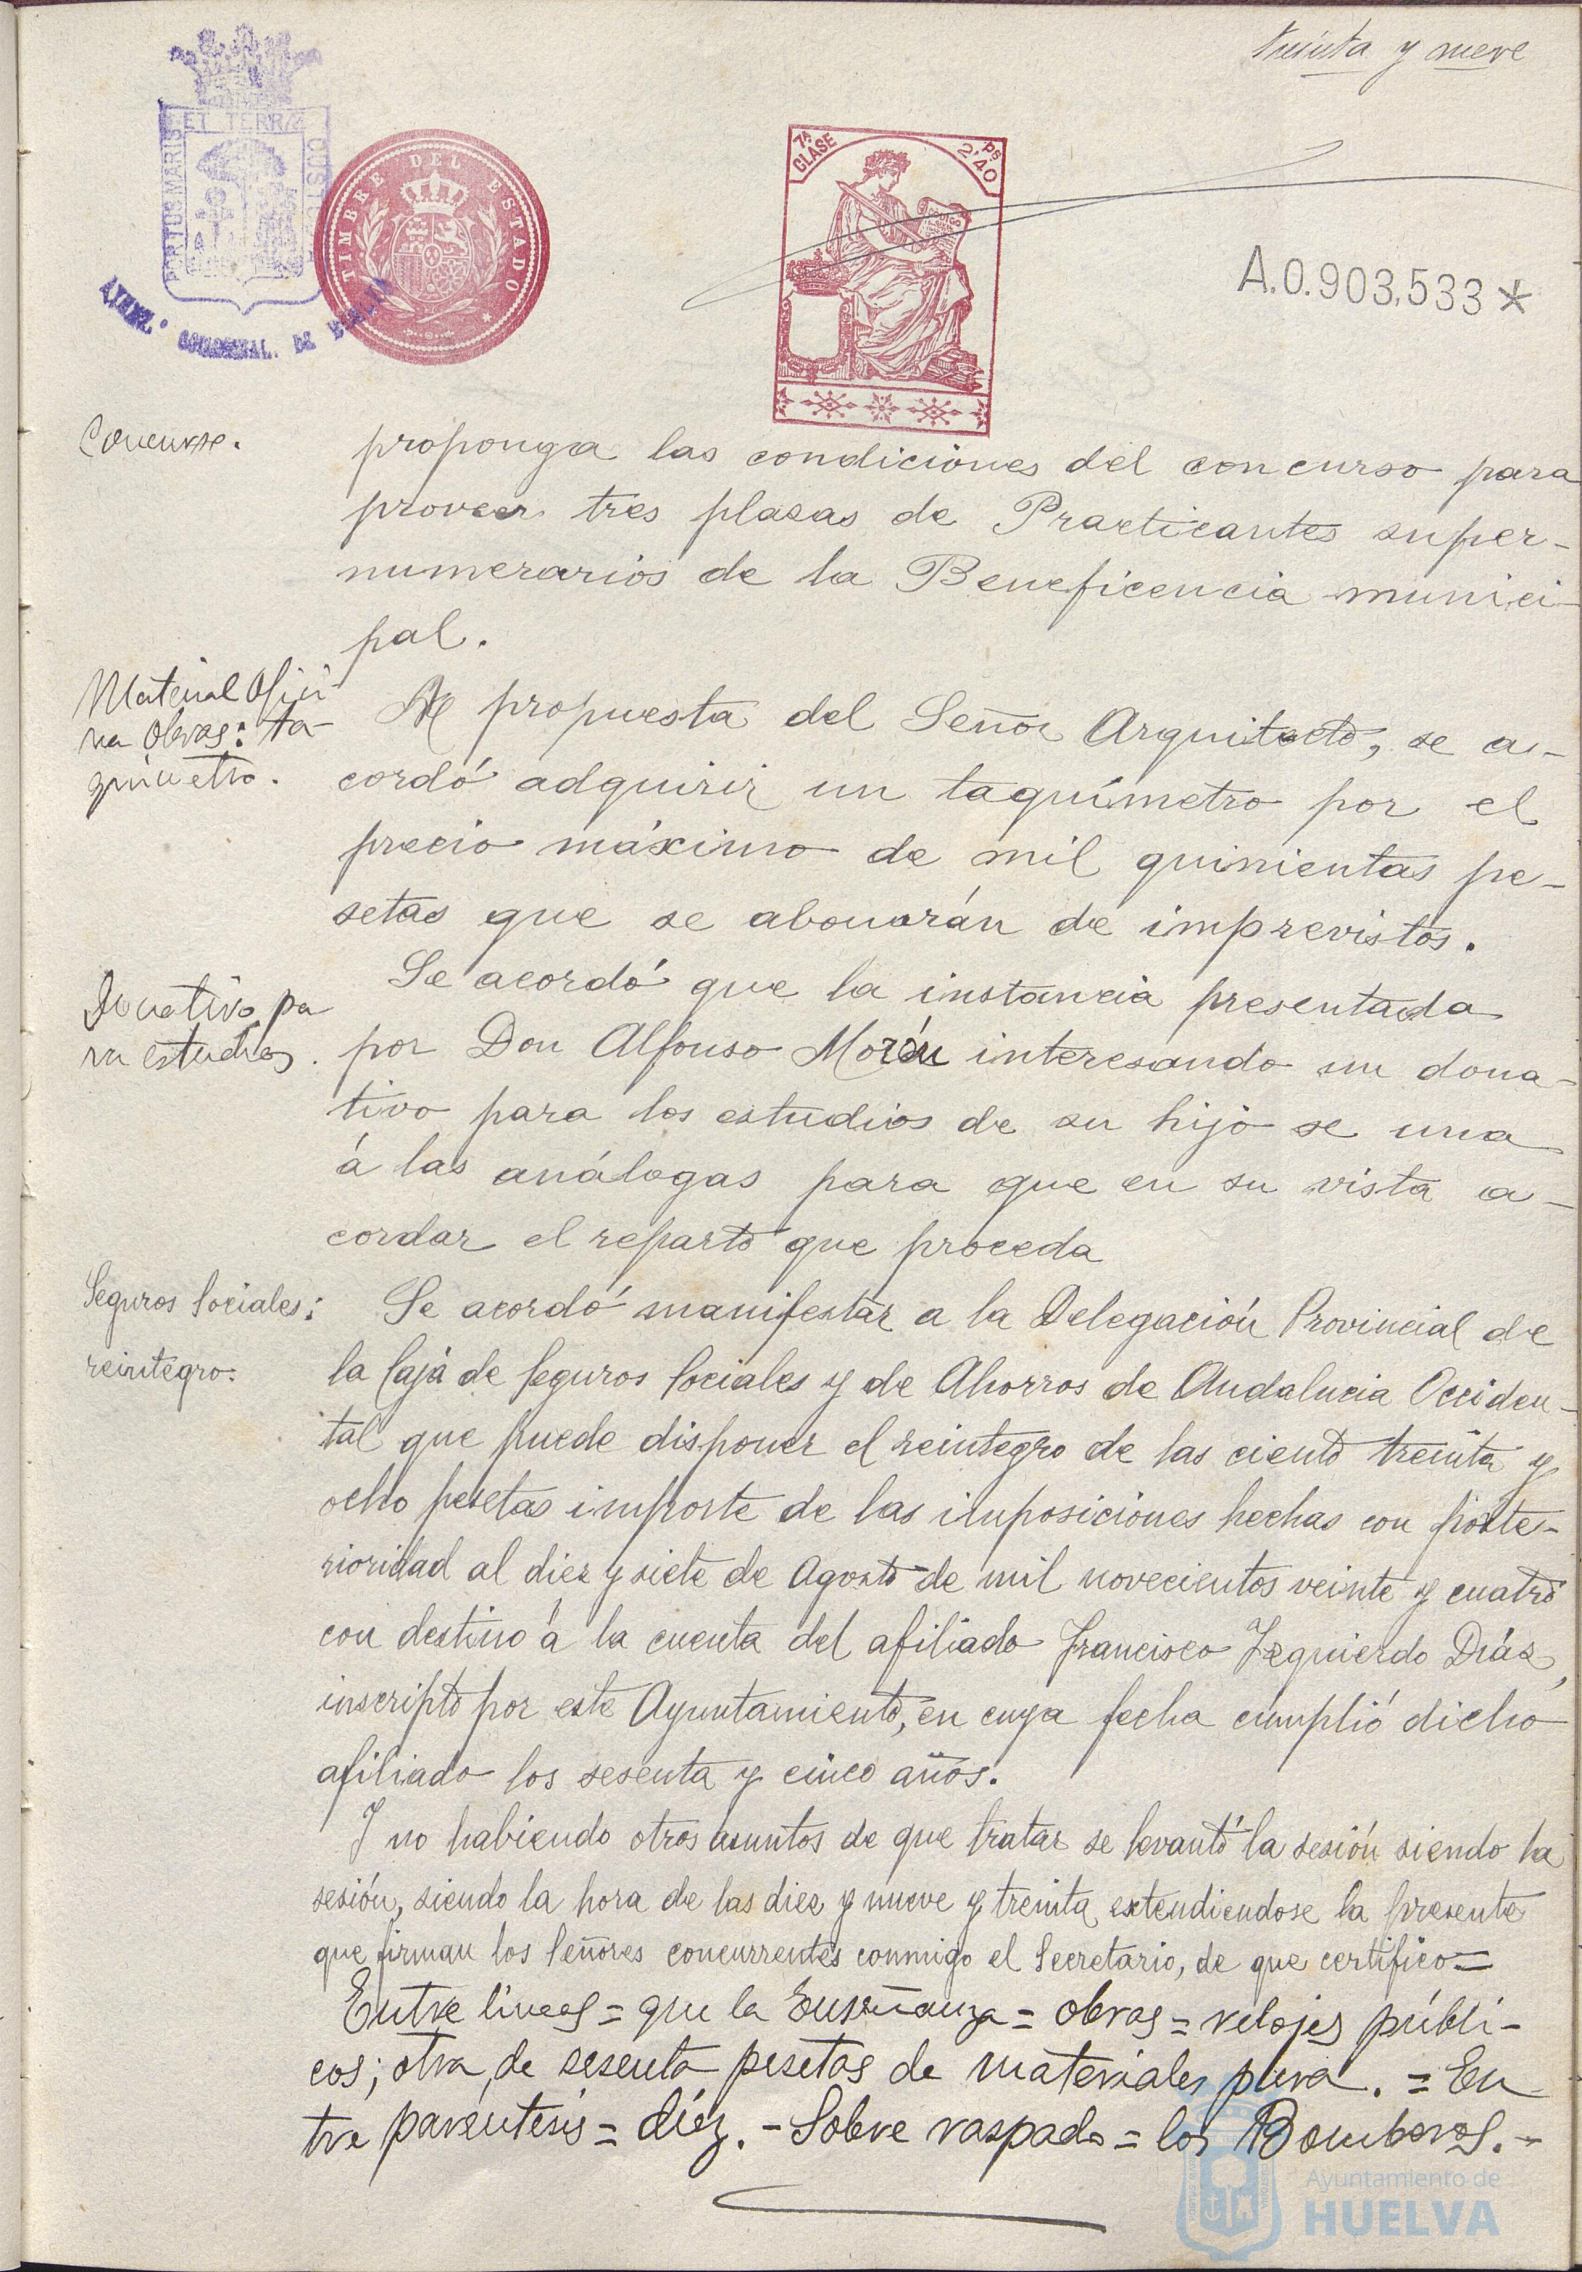 treinta y nueve
PORTUS MARIS ET TERRÆ CUSTODIA
TIMBRE DEL ESTADO
7ª CLASE
2'40 PS
A.0.903,533*
AYUNT.º CONSTITUCIONAL. DE HUELVA
Concurso.
proponga las condiciones del concurso para
proveer tres plazas de Practicantes super-
numerarios de la Beneficencia munici-
pal.
Material Ofici-
na Obras: ta-
químetro.
A propuesta del Señor Arquitecto, se a-
cordó adquirir un taquímetro por el
precio máximo de mil quinientas pe-
setas que se abonarán de imprevistos.
Donativo pa
ra estudios.
Se acordó que la instancia presentada
por Don Alfonso Morón interesando un dona-
tivo para los estudios de su hijo se una
á las análogas para que en su vista a-
cordar el reparto que proceda
Seguros Sociales:
reintegro.
Se acordó manifestar a la Delegación Provincial de
la Caja de Seguros Sociales y de Ahorros de Andalucia Occiden-
tal que puede disponer el reintegro de las ciento treinta y
ocho pesetas importe de las imposiciones hechas con poste-
rioridad al diez y siete de Agosto de mil novecientos veinte y cuatro
con destino á la cuenta del afiliado Francisco Izquierdo Diáz,
inscripto por este Ayuntamiento, en cuya fecha cumplió dicho
afiliado los sesenta y cinco años.
Y no habiendo otros asuntos de que tratar se levantó la sesión siendo la
sesión, siendo la hora de las diez y nueve y treinta extendiendose la presente
que firman los Señores concurrentes conmigo el Secretario, de que certifico=
Entre lineas = que la Enseñanza = obras = relojes públi-
cos; otra, de sesenta pesetas de materiales para. = En
tre paréntesis = diéz. - Sobre raspado = los Bomberos. -
Ayuntamiento de
HUELVA